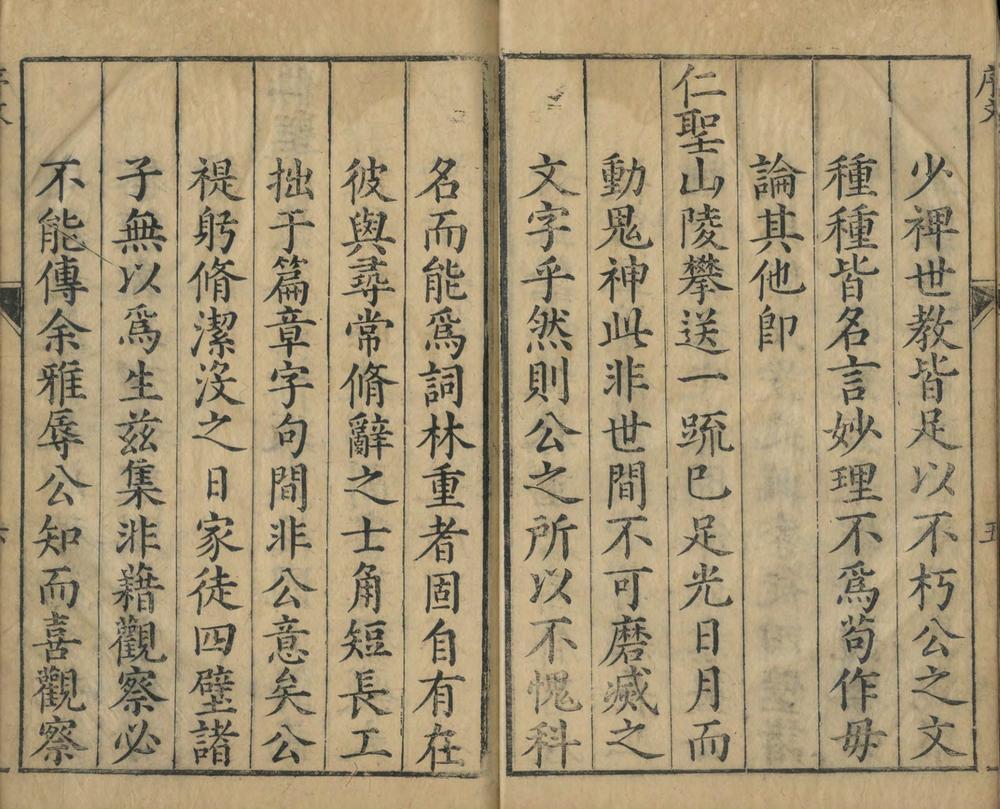 少裨世教皆足以不朽公之文
種種皆名言妙理不爲苟作毋
論其他卽
仁聖山陵攀送一疏已足光日月而
動鬼神此非世間不可磨滅之
文字乎然則公之所以不愧科
名而能爲詞林重者固自有在
彼與尋常脩辭之士角短長工
拙于篇章字句間非公意矣公
禔躬脩潔沒之日家徒四壁諸
子無以爲生茲集非藉觀察必
不能傳余雅辱公知而喜觀察
序文
五